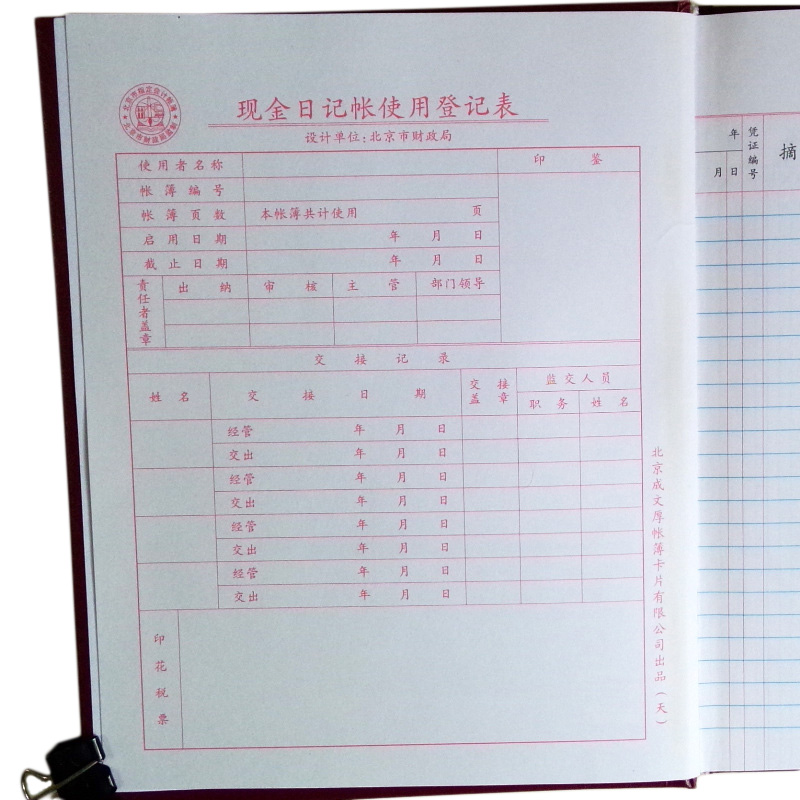 现金日记帐使用登记表
设计单位:北京市财政局
使用者名称
印 鉴
帐簿编号
帐簿页数 本帐簿共计使用 页
启用日期 年 月 日
截止日期 年 月 日
责任者盖章 出 纳 审 核 主 管 部门领导
交 接 记 录
姓 名 交 接 日 期 交接盖章 监交人员
职 务 姓 名
经管 年 月 日
交出 年 月 日
经管 年 月 日
交出 年 月 日
经管 年 月 日
交出 年 月 日
经管 年 月 日
交出 年 月 日
印花税票
北京成文厚帐簿卡片有限公司出品(天)
年 凭证编号 摘
月 日